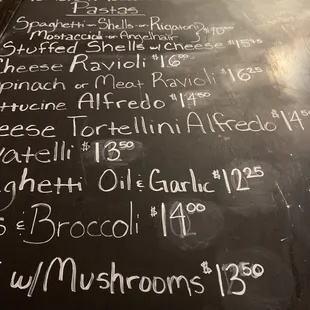 Pastas
Spaghetti - Shells - or Rigatoni
Mostaccioli - or Angelhair $10.00
Stuffed Shells w/ Cheese $15.75
Cheese Ravioli $16.00
Spinach or Meat Ravioli $16.25
ttucine Alfredo $14.50
eese Tortellini Alfredo $14.5
vatelli $13.50
ghetti Oil & Garlic $12.25
s & Broccoli $14.00
w/ Mushrooms $13.50